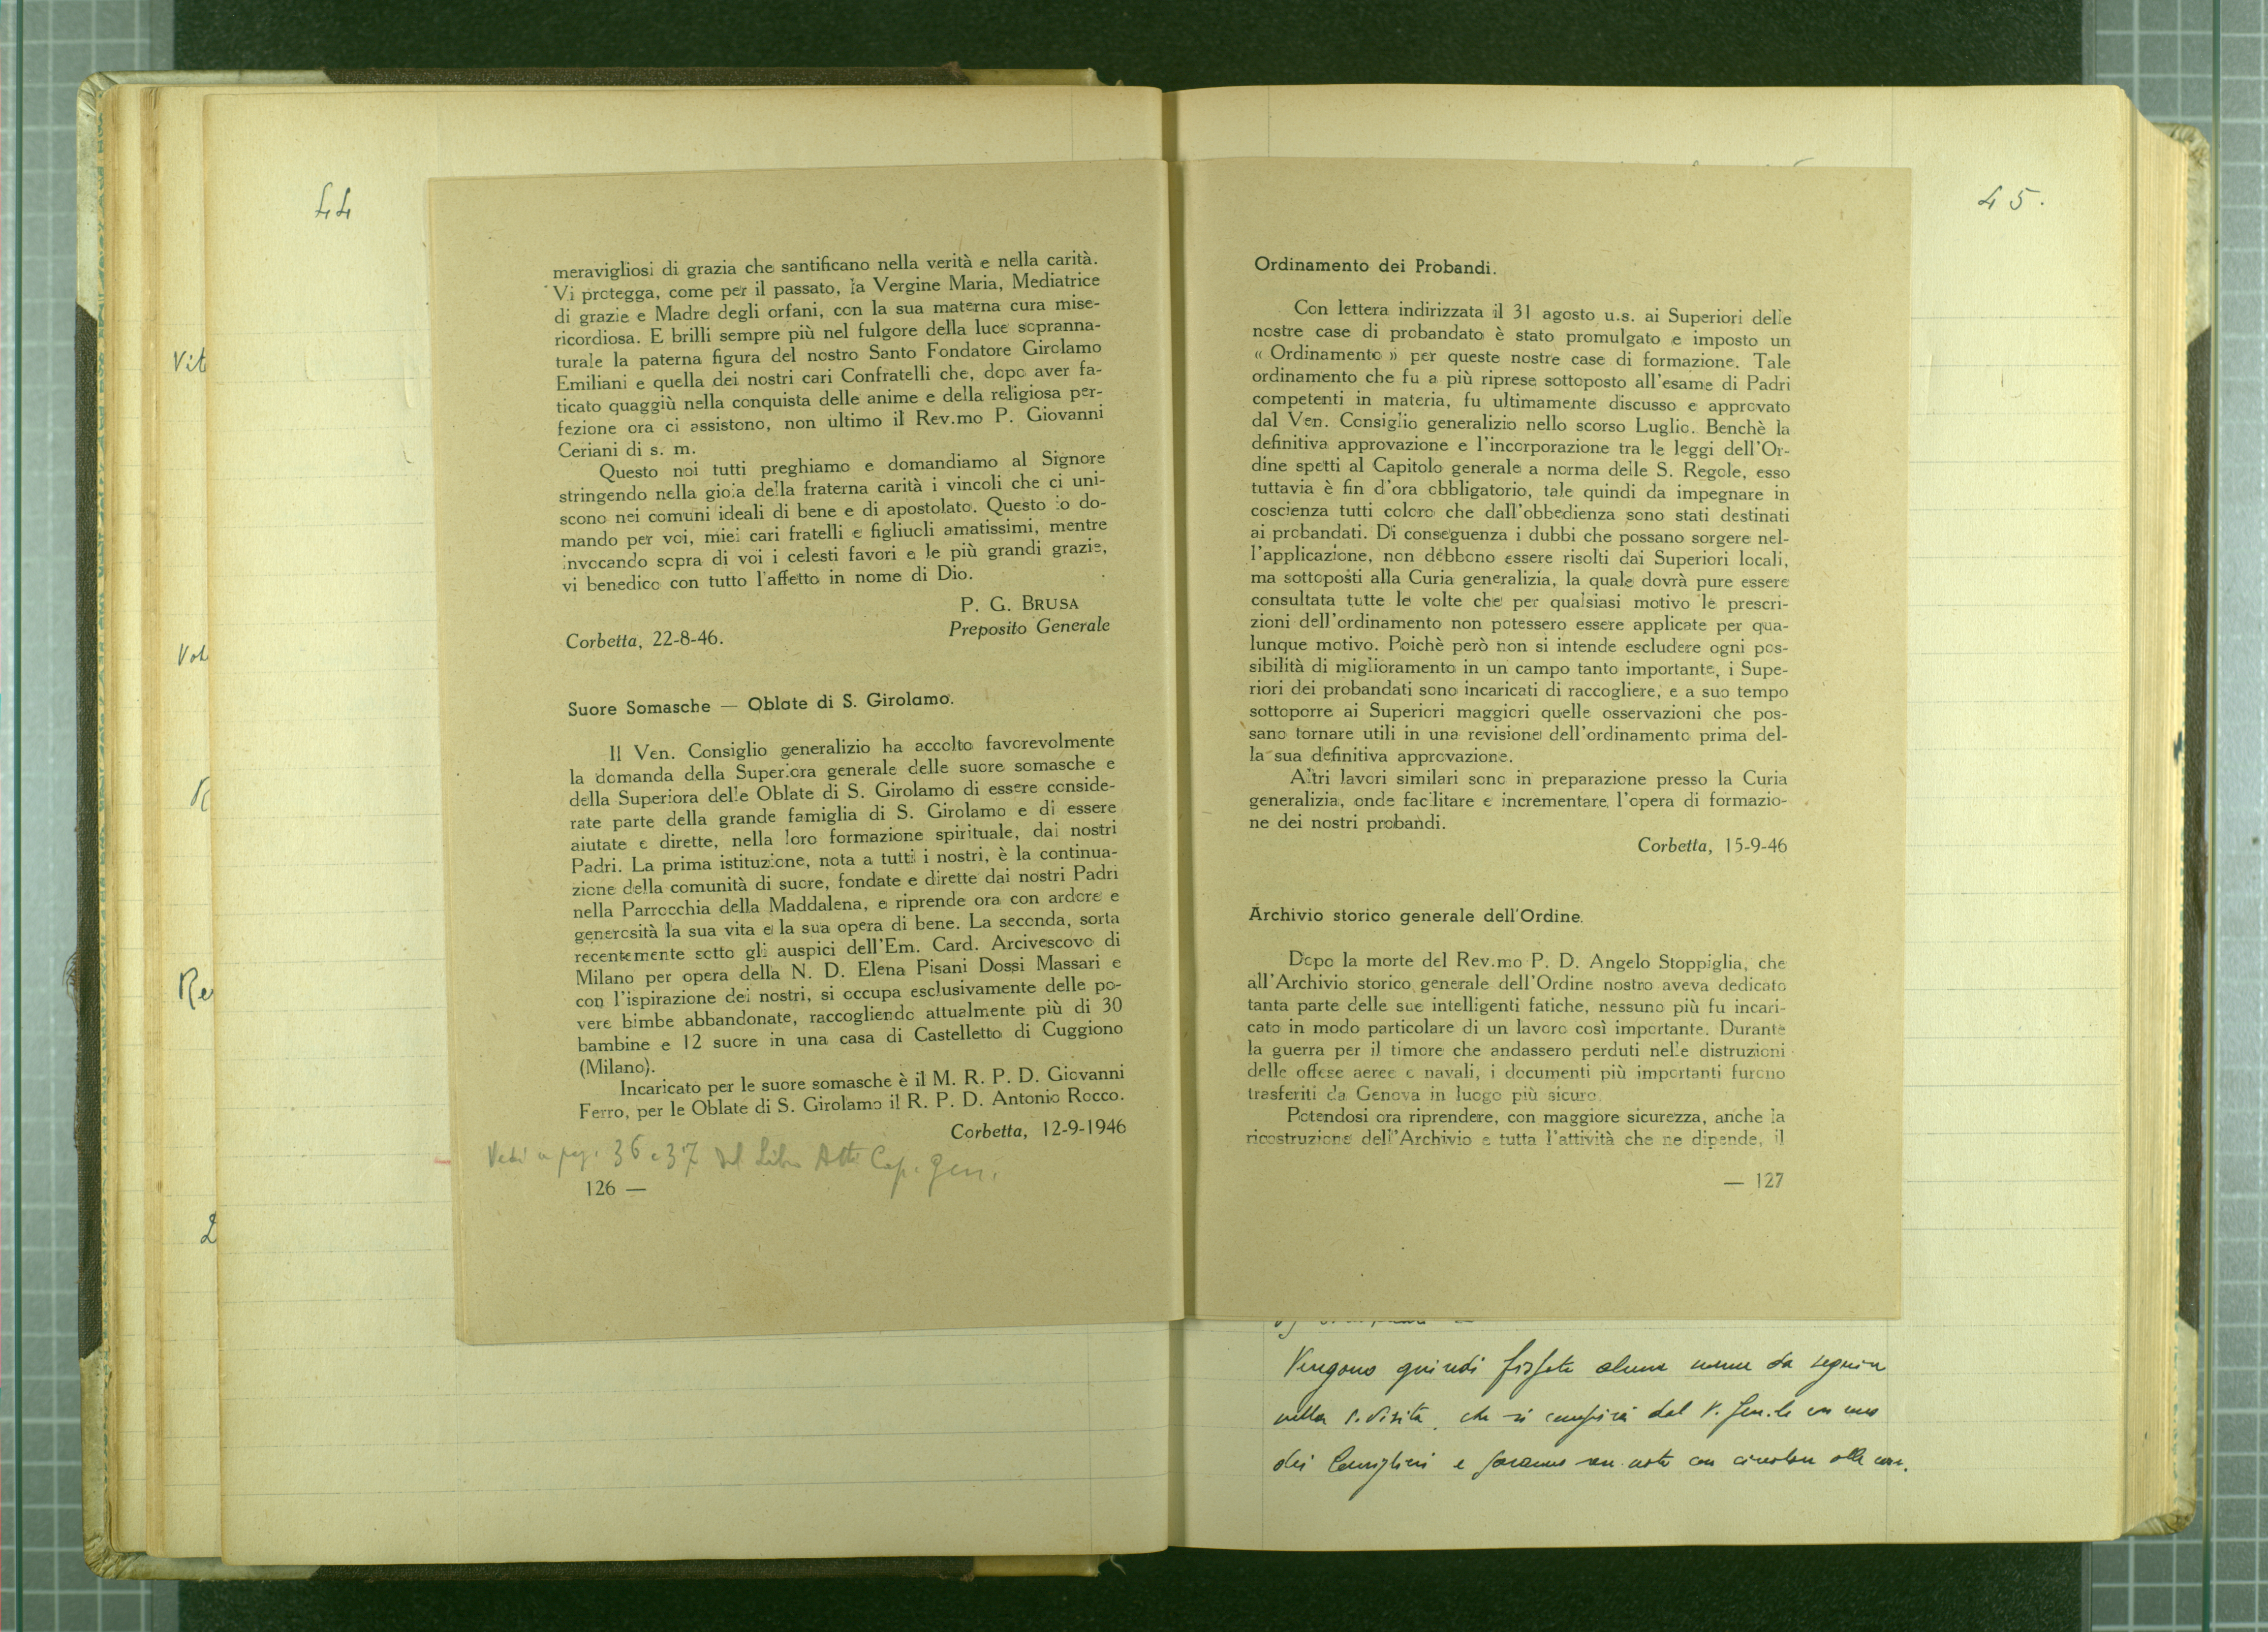 44
meravigliosi di grazia che santificano nella verità e nella carità.
Vi protegga, come per il passato, la Vergine Maria, Mediatrice
di grazie e Madre degli orfani, con la sua materna cura mise-
ricordiosa. E brilli sempre più nel fulgore della luce sopranna-
turale la paterna figura del nostro Santo Fondatore Girolamo
Emiliani e quella dei nostri cari Confratelli che, dopo aver fa-
ticato quaggiù nella conquista delle anime e della religiosa per-
fezione ora ci assistono, non ultimo il Rev.mo P. Giovanni
Ceriani di s. m.
Questo noi tutti preghiamo e domandiamo al Signore
stringendo nella gioia della fraterna carità i vincoli che ci uni-
scono nei comuni ideali di bene e di apostolato. Questo io do-
mando per voi, miei cari fratelli e figliuoli amatissimi, mentre
invocando sopra di voi i celesti favori e le più grandi grazie,
vi benedico con tutto l'affetto in nome di Dio.
P. G. BRUSA
Preposito Generale
Corbetta, 22-8-46.
Suore Somasche — Oblate di S. Girolamo.
Il Ven. Consiglio generalizio ha accolto favorevolmente
la domanda della Superiora generale delle suore somasche e
della Superiora delle Oblate di S. Girolamo di essere conside-
rate parte della grande famiglia di S. Girolamo e di essere
aiutate e dirette, nella loro formazione spirituale, dai nostri
Padri. La prima istituzione, nota a tutti i nostri, è la continua-
zione della comunità di suore, fondate e dirette dai nostri Padri
nella Parrocchia della Maddalena, e riprende ora con ardore e
generosità la sua vita e la sua opera di bene. La seconda, sorta
recentemente sotto gli auspici dell'Em. Card. Arcivescovo di
Milano per opera della N. D. Elena Pisani Dossi Massari e
con l'ispirazione dei nostri, si occupa esclusivamente delle po-
vere bimbe abbandonate, raccogliendo attualmente più di 30
bambine e 12 suore in una casa di Castelletto di Cuggiono
(Milano).
Incaricato per le suore somasche è il M. R. P. D. Giovanni
Ferro, per le Oblate di S. Girolamo il R. P. D. Antonio Rocco.
Corbetta, 12-9-1946
Vedi a pag. 36 e 37 del Libro Atti Cap. gen.
126 —
Vit
Vot
Re
45.
Ordinamento dei Probandi.
Con lettera indirizzata il 31 agosto u.s. ai Superiori delle
nostre case di probandato è stato promulgato e imposto un
« Ordinamento » per queste nostre case di formazione. Tale
ordinamento che fu a più riprese sottoposto all'esame di Padri
competenti in materia, fu ultimamente discusso e approvato
dal Ven. Consiglio generalizio nello scorso Luglio. Benchè la
definitiva approvazione e l'incorporazione tra le leggi dell'Or-
dine spetti al Capitolo generale a norma delle S. Regole, esso
tuttavia è fin d'ora obbligatorio, tale quindi da impegnare in
coscienza tutti coloro che dall'obbedienza sono stati destinati
ai probandati. Di conseguenza i dubbi che possano sorgere nel-
l'applicazione, non debbono essere risolti dai Superiori locali,
ma sottoposti alla Curia generalizia, la quale dovrà pure essere
consultata tutte le volte che per qualsiasi motivo le prescri-
zioni dell'ordinamento non potessero essere applicate per qua-
lunque motivo. Poichè però non si intende escludere ogni pos-
sibilità di miglioramento in un campo tanto importante, i Supe-
riori dei probandati sono incaricati di raccogliere, e a suo tempo
sottoporre ai Superiori maggiori quelle osservazioni che pos-
sano tornare utili in una revisione dell'ordinamento prima del-
la sua definitiva approvazione.
Altri lavori similari sono in preparazione presso la Curia
generalizia, onde facilitare e incrementare l'opera di formazio-
ne dei nostri probandi.
Corbetta, 15-9-46
Archivio storico generale dell'Ordine.
Dopo la morte del Rev.mo P. D. Angelo Stoppiglia, che
all'Archivio storico generale dell'Ordine nostro aveva dedicato
tanta parte delle sue intelligenti fatiche, nessuno più fu incari-
cato in modo particolare di un lavoro così importante. Durante
la guerra per il timore che andassero perduti nelle distruzioni
delle offese aeree e navali, i documenti più importanti furono
trasferiti da Genova in luogo più sicuro.
Potendosi ora riprendere, con maggiore sicurezza, anche la
ricostruzione dell'Archivio e tutta l'attività che ne dipende, il
— 127
Vengono quindi fissate alcune norme da seguire
nella S. Visita, che si compirà dal P. Gen.le con uno
dei Consiglieri e saranno rese note con circolare alle case.